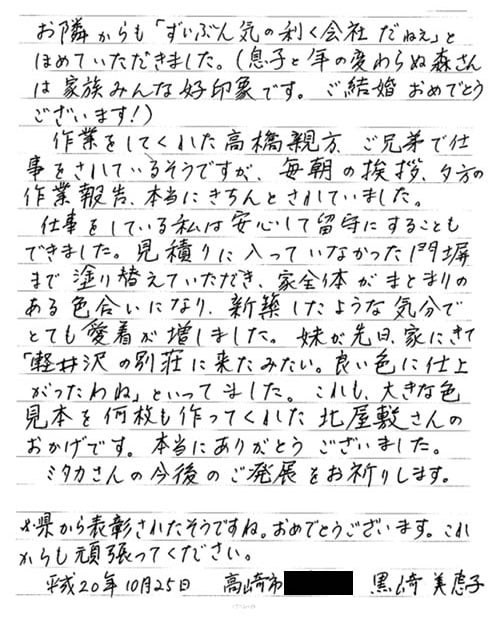 お隣からも「ずいぶん気の利く会社だねぇ」と
ほめていただきました。(息子と年の変わらぬ森さん
は家族みんな好印象です。ご結婚おめでとう
ございます!)
作業をしてくれた高橋親方、ご兄弟で仕
事をされているそうですが、毎朝の挨拶、夕方の
作業報告、本当にきちんとされていました。
仕事をしている私は安心して留守にすることも
できました。見積りに入っていなかった門塀
まで塗り替えていただき、家全体がまとまりの
ある色合いになり、新築したような気分で
とても愛着が増しました。妹が先日、家にきて
「軽井沢の別荘に来たみたい。良い色に仕上
がったわね」といってました。これも、大きな色
見本を何枚も作ってくれた北屋敷さんの
おかげです。本当にありがとうございました。
ミタカさんの今後のご発展をお祈りします。
※県から表彰されたそうですね。おめでとうございます。これ
からも頑張ってください。
平成20年10月25日 高崎市 黒崎 美恵子